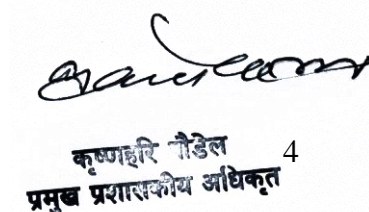 कृष्णहरि पौडेल 4
प्रमुख प्रशासकीय अधिकृत